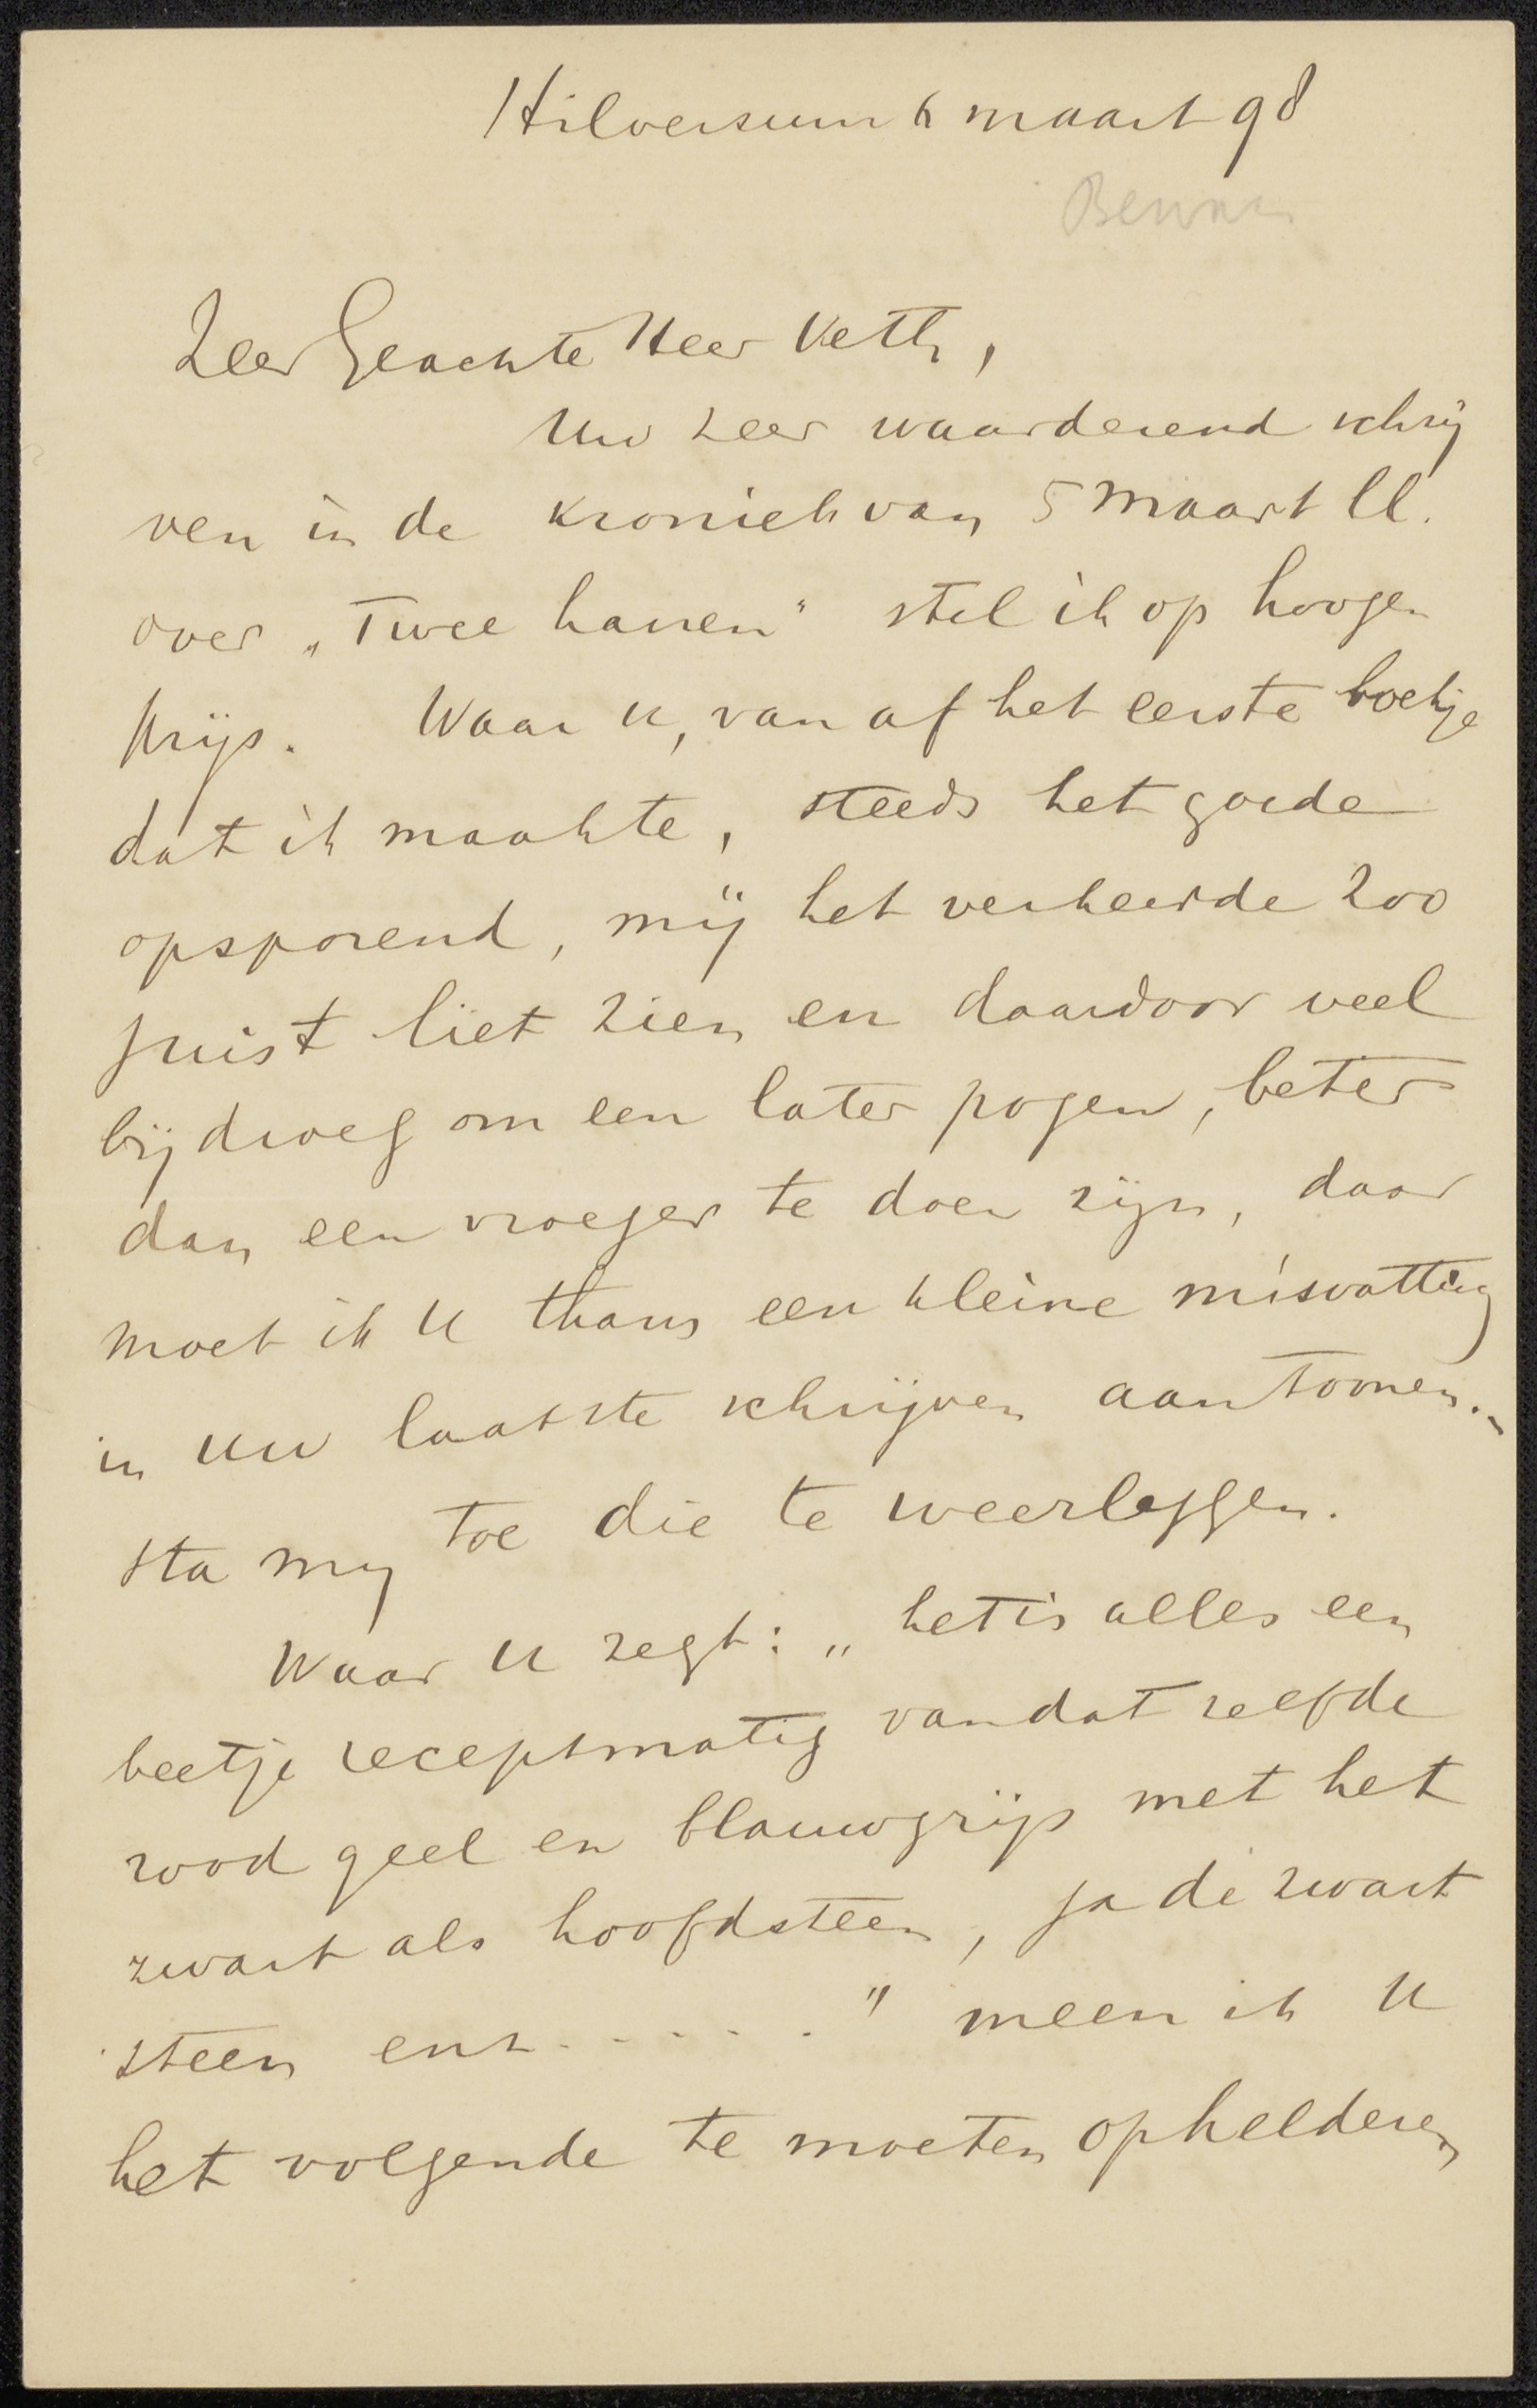 Hilversum 6 maart 98
Zeer Geachte Heer Veth,
Uw zeer waarderend schrij
ven in de kroniek van 5 Maart ll.
over „Twee hanen" stel ik op hoogen
prijs. Waar u, van af het eerste boekje
dat ik maakte, steeds het goede
opsporend, mij het verkeerde zoo
juist liet zien en daardoor veel
bijdroeg om een later pogen, beter
dan een vroeger te doen zijn, daar
moet ik u thans een kleine misvatting
in uw laatste schrijven aantoonen.
sta mij toe die te weerleggen.
Waar u zegt: „het is alles een
beetje receptmatig van dat zelfde
rood geel en blauwgrijs met het
zwart als hoofdsteen, ja de zwart
steen enz. . . . . ." meen ik u
het volgende te moeten ophelderen